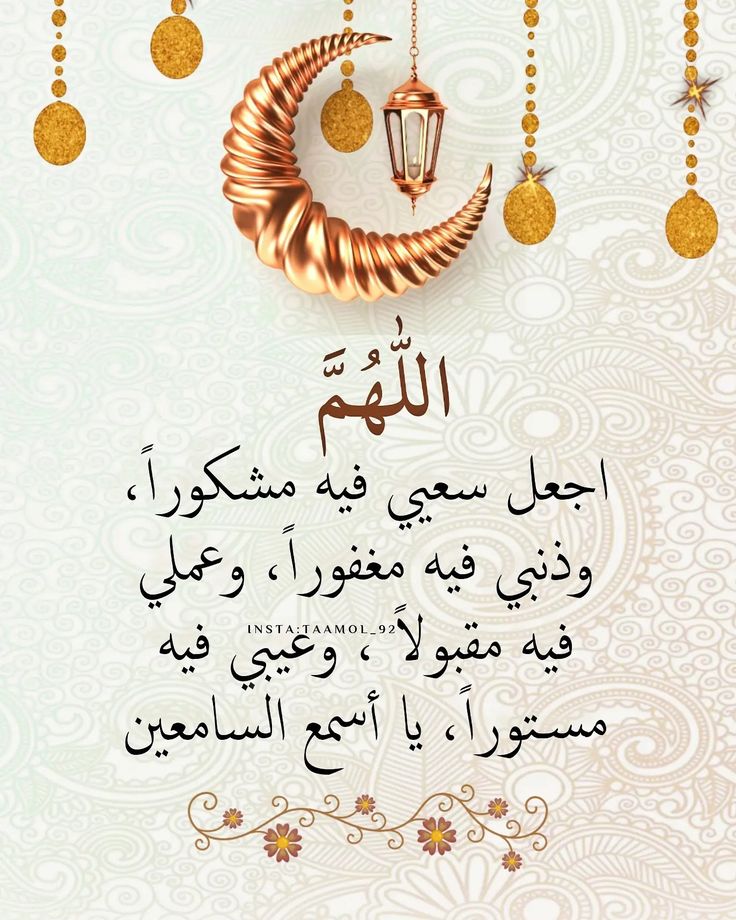 اللّٰهُمَّ
اجعل سعيي فيه مشكوراً،
وذنبي فيه مغفوراً، وعملي
INSTA:TAAMOL_92
فيه مقبولاً ، وعيبي فيه
مستوراً، يا أسمع السامعين